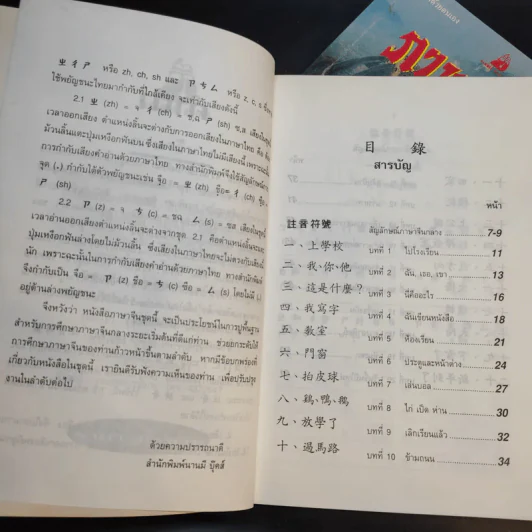 ㄓㄔㄕ หรือ zh, ch, sh และ ㄗㄘㄙ หรือ z, c, s
ใช้พยัญชนะไทยมากำกับที่ใกล้เคียง จะเท่ากับเสียงดังนี้
2.1 ㄓ (zh) = จ ㄔ (ch) = ช,ฉ ㄕ (sh) ซ,ส
เวลาออกเสียง ตำแหน่งลิ้นจะต่างกับการออกเสียงในภาษาไทย คือ
ม้วนลิ้นแตะปุ่มเหงือกฟันบน ซึ่งเสียงในภาษาไทยไม่มีเสียงนี้
การกำกับเสียงคำอ่านด้วยภาษาไทย ทางสำนักพิมพ์จึงใช้สัญลักษณ์
จุด (.) กำกับใต้ตัวพยัญชนะเช่น จฺือ = ㄓ (zh) ชฺือ= ㄔ (ch)
ㄕ (sh)
2.2 ㄗ (z) = จ ㄘ (c) = ช,ฉ ㄙ (s) = ซ,ส
เวลาอ่านออกเสียง ตำแหน่งลิ้นจะต่างจากชุด 2.1 คือตำแหน่งลิ้นจะแตะ
ปุ่มเหงือกฟันล่างโดยไม่ม้วนลิ้น ซึ่งเสียงในภาษาไทยจะไม่ตรงกับเสียง
นัก เพราะฉะนั้นในการกำกับเสียงคำอ่านด้วยภาษาไทย ทางสำนักพิมพ์
จึงกำกับเป็น จือ = ㄗ (z) ชือ = ㄘ (c) ซือ = ㄙ (s) โดยไม่มี (.)
อยู่ด้านล่างพยัญชนะ
จึงหวังว่า หนังสือภาษาจีนชุดนี้ จะเป็นประโยชน์ในการปูพื้นฐาน
สำหรับการศึกษาภาษาจีนกลางระยะเริ่มต้นที่ดีแก่ท่าน ช่วยยกระดับให้
การศึกษาภาษาจีนของท่านก้าวหน้าขึ้นตามลำดับ หากมีข้อบกพร่อง
เกี่ยวกับหนังสือในชุดนี้ เรายินดีรับฟังความเห็นของท่าน เพื่อปรับปรุง
งานในลำดับต่อไป
ด้วยความปรารถนาดี
สำนักพิมพ์นานมี บุ๊คส์
目 錄
สารบัญ
หน้า
註音符號 สัญลักษณ์ภาษาจีนกลาง 7-9
一、上學校 บทที่ 1 ไปโรงเรียน 11
二、我·你·他 บทที่ 2 ฉัน, เธอ, เขา 13
三、這是什麼? บทที่ 3 นี่คืออะไร 16
四、我寫字 บทที่ 4 ฉันเขียนหนังสือ 18
五、教室 บทที่ 5 ห้องเรียน 21
六、門窗 บทที่ 6 ประตูและหน้าต่าง 24
七、拍皮球 บทที่ 7 เล่นบอล 27
八、鷄、鴨、鵝 บทที่ 8 ไก่ เป็ด ห่าน 30
九、放學了 บทที่ 9 เลิกเรียนแล้ว 32
十、過馬路 บทที่ 10 ข้ามถนน 34